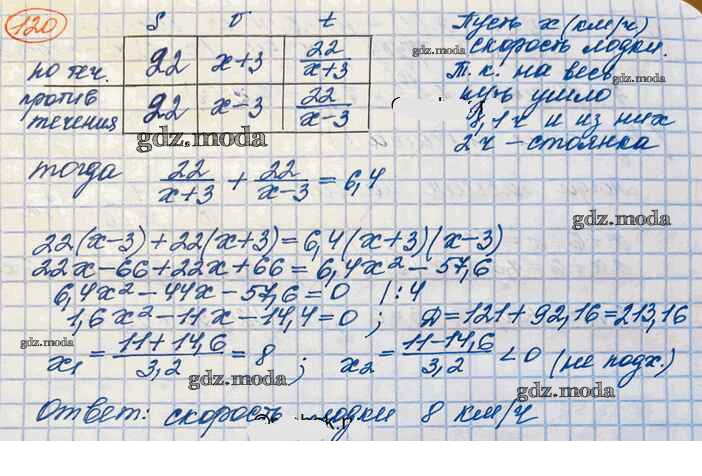 120
S v t
по теч. 22 x+3 22/(x+3)
против течения 22 x-3 22/(x-3)
Пусть x (км/ч)
скорость лодки.
Т. к. на весь
путь ушло
ч и из них
2ч - стоянка
gdz.moda
gdz.moda
gdz.moda
тогда 22/(x+3) + 22/(x-3) = 6,4
gdz.moda
22(x-3)+22(x+3)=6,4(x+3)(x-3)
22x-66+22x+66=6,4x²-57,6
6,4x²-44x-57,6=0 /:4
1,6x²-11x-14,4=0; Д=121+92,16=213,16
gdz.moda
x₁ = (11+14,6)/3,2 = 8; x₂ = (11-14,6)/3,2 <0 (не подх.)
gdz.moda
gdz.moda
Ответ: скорость лодки 8 км/ч